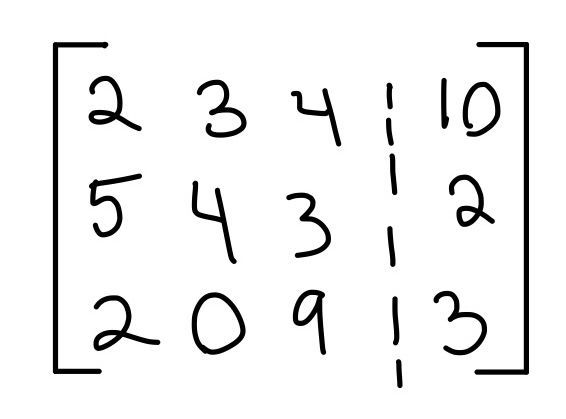 2 3 4 | 10
5 4 3 | 2
2 0 9 | 3